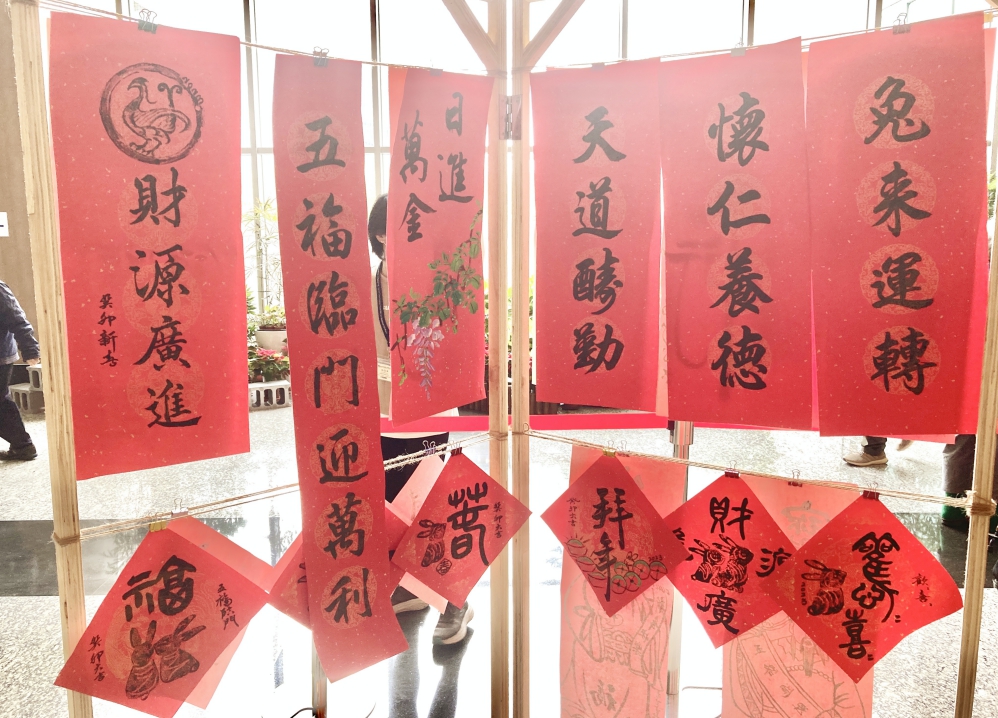 財源廣進
癸卯新春
五福臨門迎萬利
日進
萬金
天道酬勤
懷仁養德
兔来運轉
福
五福臨門
癸卯大吉
春
癸卯大吉
拜年
癸卯大吉
財
源
廣
喜
歡喜